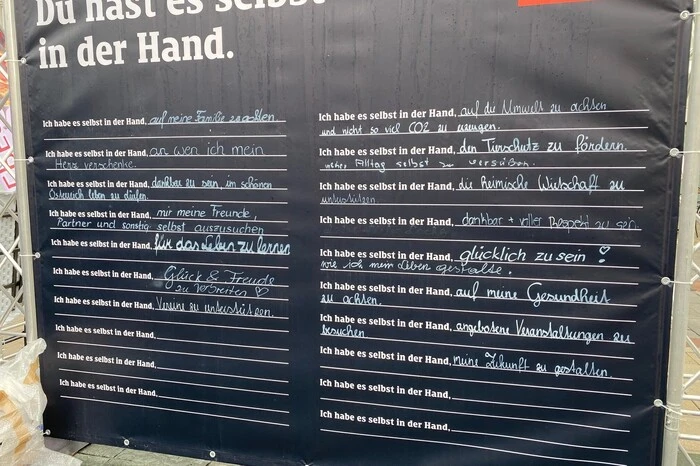 Du hast es selbst
in der Hand.
Ich habe es selbst in der Hand, auf meine Familie zu achten
Ich habe es selbst in der Hand, an wen ich mein
Herz verschenke.
Ich habe es selbst in der Hand, dankbar zu sein, im schönen
Österreich leben zu dürfen.
Ich habe es selbst in der Hand, mir meine Freunde,
Partner und sonstige selbst auszusuchen
Ich habe es selbst in der Hand, für das Leben zu lernen
Ich habe es selbst in der Hand, Glück & Freude
zu verbreiten ♡
Ich habe es selbst in der Hand, Vereine zu unterstützen.
Ich habe es selbst in der Hand,
Ich habe es selbst in der Hand,
Ich habe es selbst in der Hand,
Ich habe es selbst in der Hand, auf die Umwelt zu achten
und nicht so viel CO2 zu erzeugen.
Ich habe es selbst in der Hand, den Tierschutz zu fördern.
Alltag selbst zu versüßen.
Ich habe es selbst in der Hand, die heimische Wirtschaft zu
unterstützen
Ich habe es selbst in der Hand, dankbar + voller Respekt zu sein
Ich habe es selbst in der Hand, glücklich zu sein!
wie ich mein Leben gestalte.
Ich habe es selbst in der Hand, auf meine Gesundheit
zu achten.
Ich habe es selbst in der Hand, angebotene Veranstaltungen zu
besuchen
Ich habe es selbst in der Hand, meine Zukunft zu gestalten.
Ich habe es selbst in der Hand,
Ich habe es selbst in der Hand,